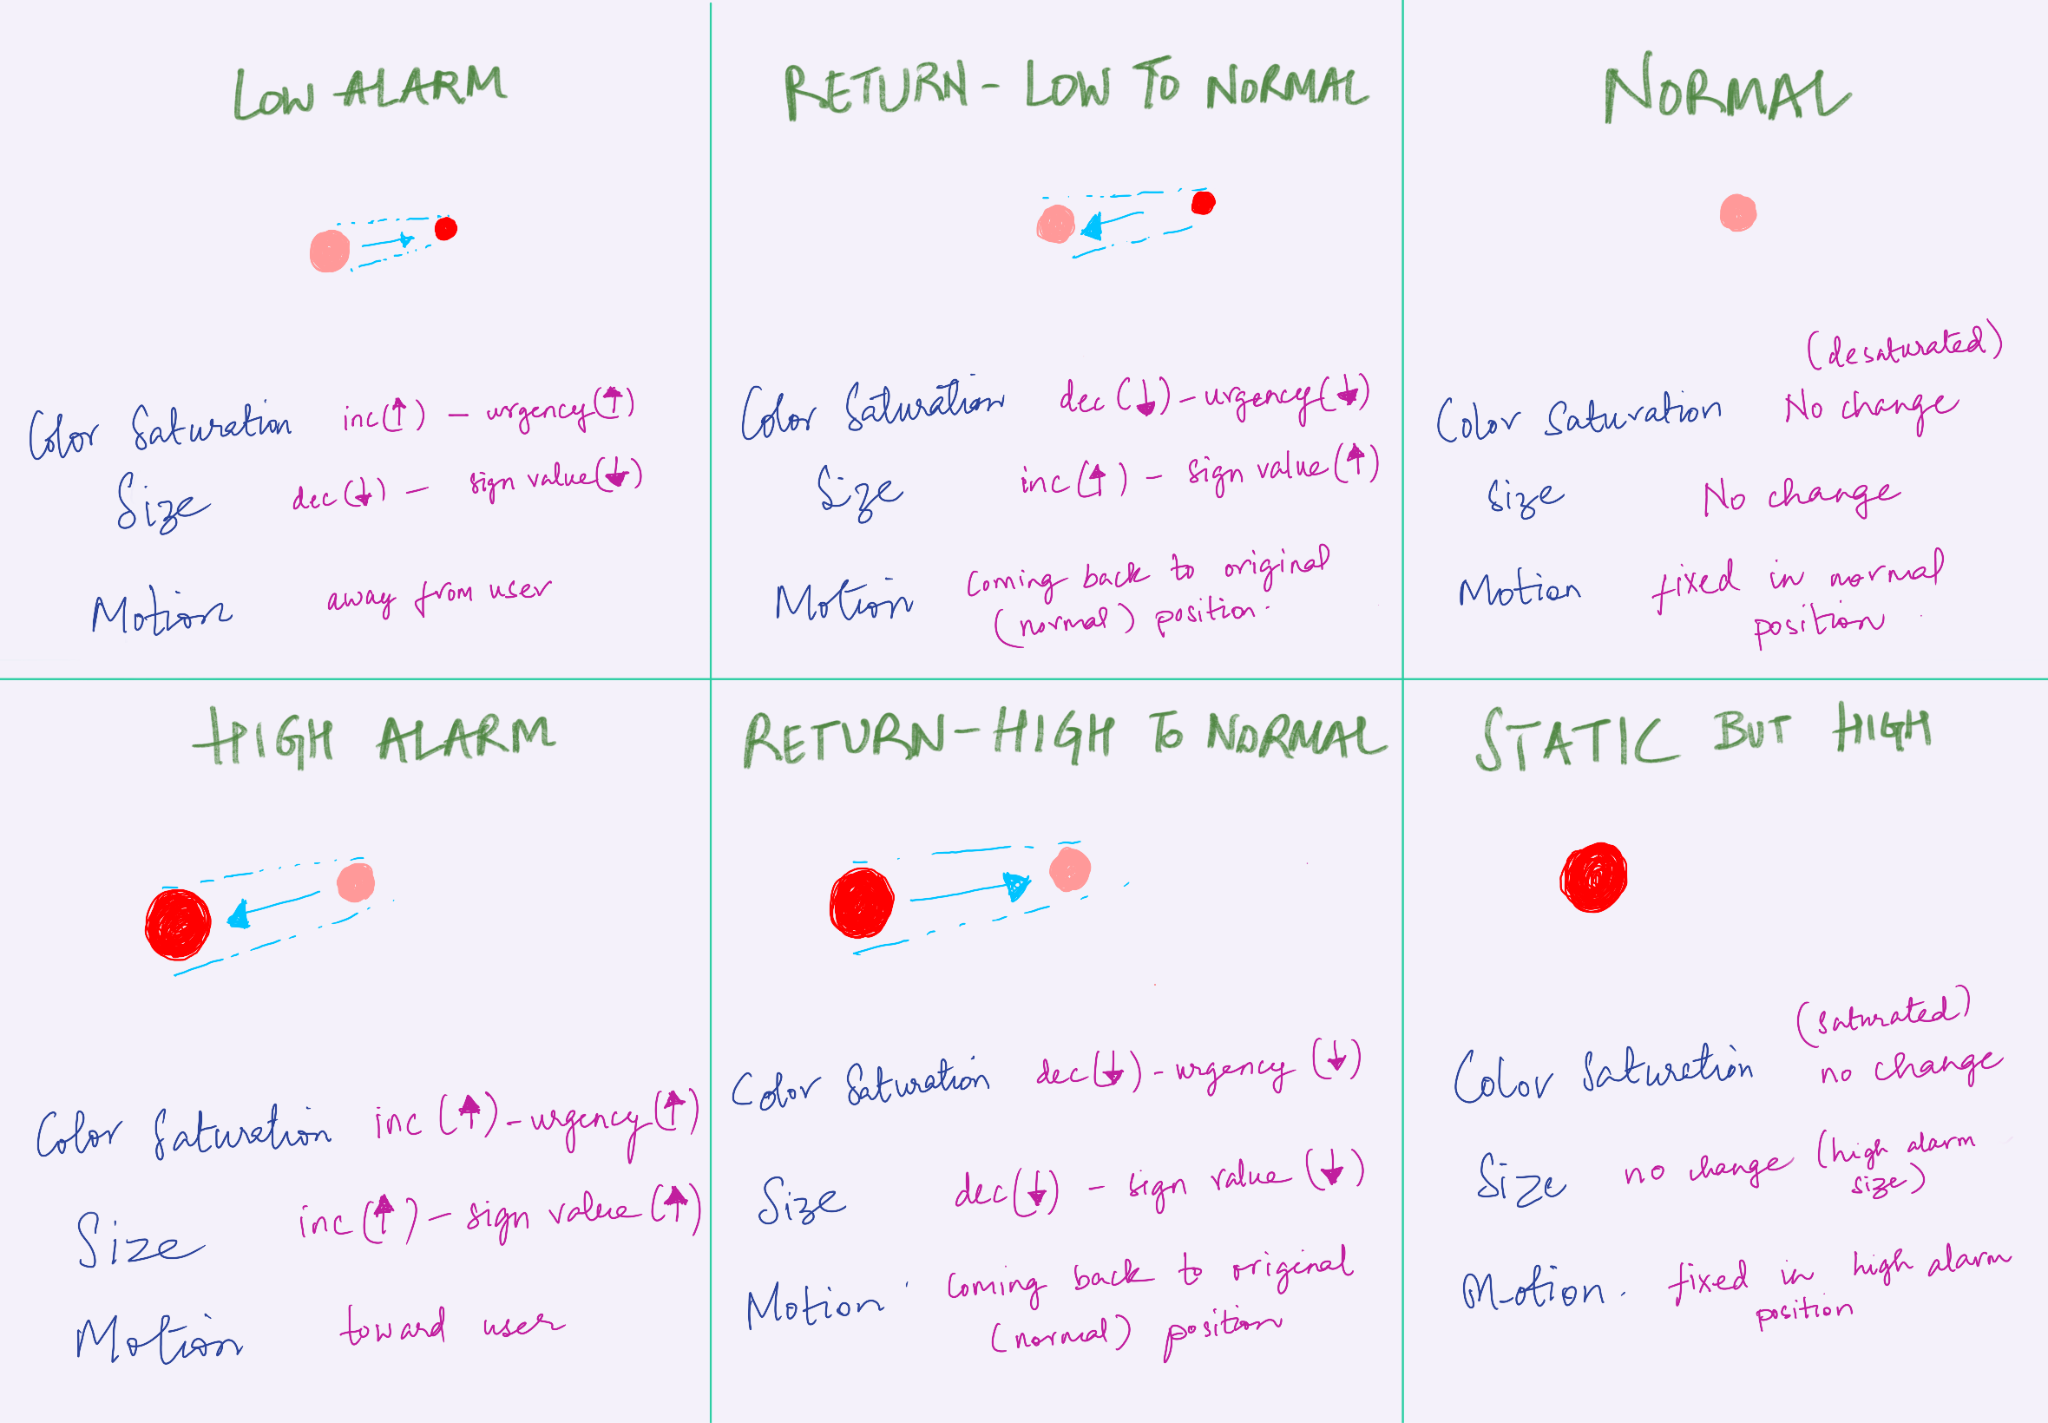 LOW ALARM
Color Saturation inc(↑) - urgency(↑)
Size dec(↓) - sign value(↓)
Motion away from user
RETURN - LOW TO NORMAL
Color Saturation dec(↓) - urgency(↓)
Size inc(↑) - sign value(↑)
Motion coming back to original
(normal) position.
NORMAL
(desaturated)
Color Saturation No change
Size No change
Motion fixed in normal
position
HIGH ALARM
Color Saturation inc(↑) - urgency(↑)
Size inc(↑) - sign value(↑)
Motion toward user
RETURN - HIGH TO NORMAL
Color Saturation dec(↓) - urgency(↓)
Size dec(↓) - sign value(↓)
Motion coming back to original
(normal) position
STATIC BUT HIGH
(saturated)
Color Saturation no change
Size no change (high alarm
size)
Motion. fixed in high alarm
position